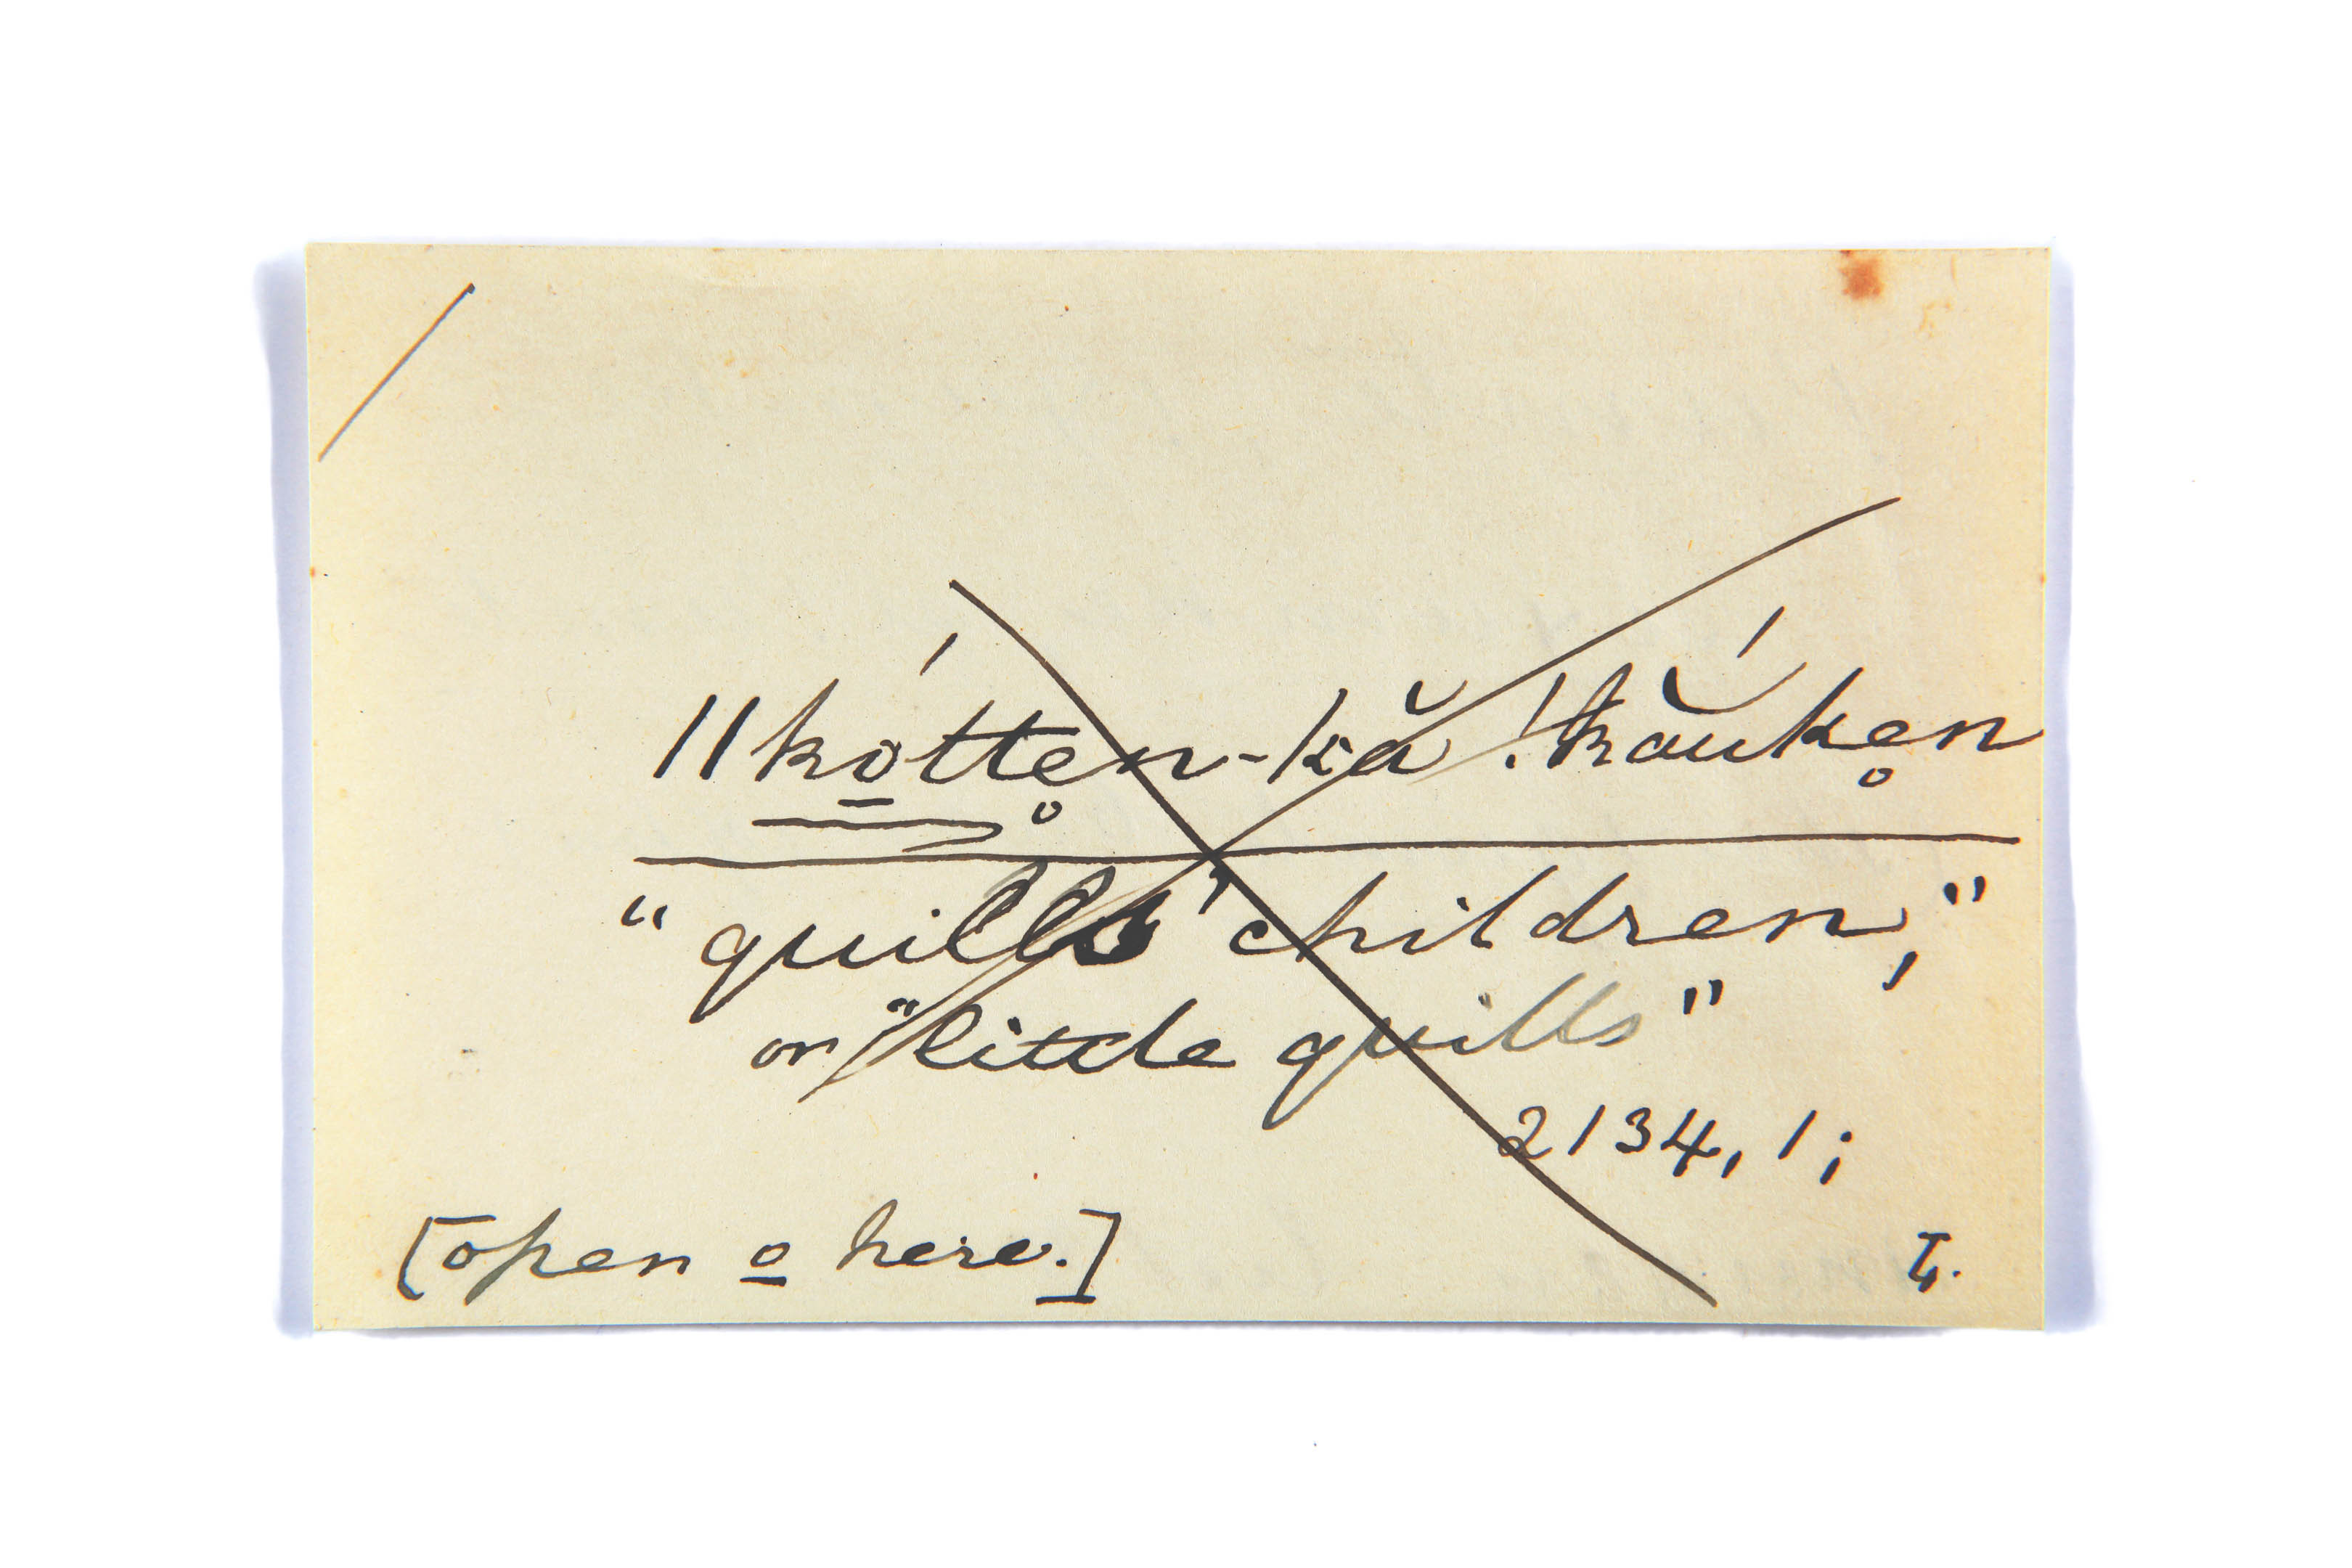 ǁkó̱tten̥-kă !kắuken̥
"quills' children,"
or "little quills"
2134, 1;
[open o̱ here.]